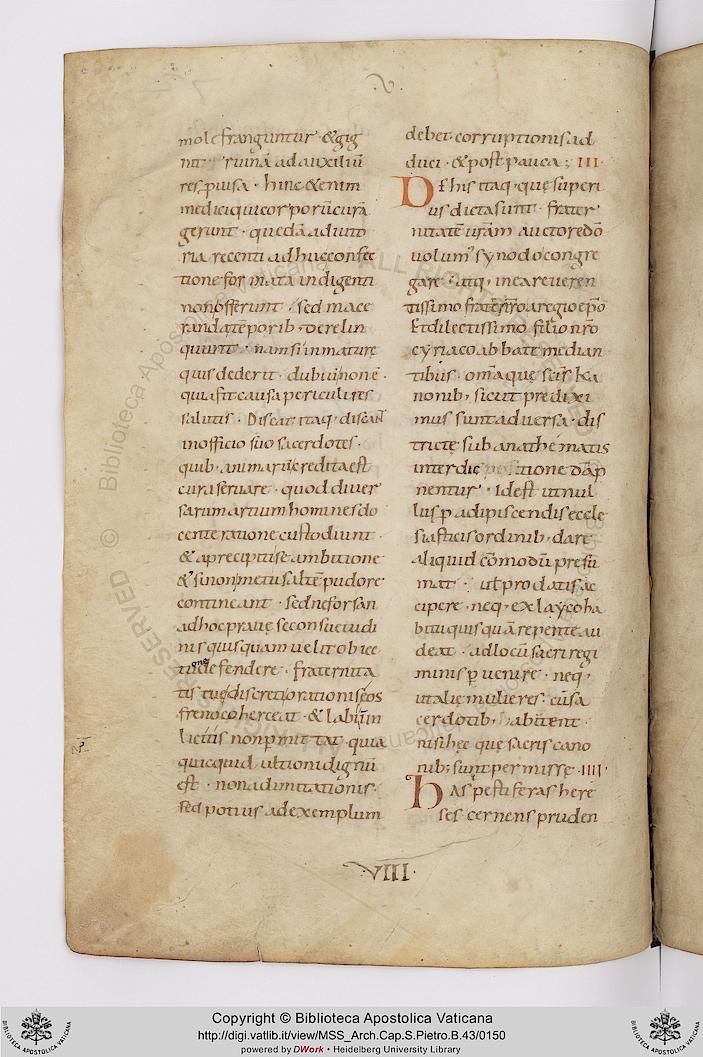 .V.
mole franguntur · & gig
nit ruinā ad auxiliū
res piusa · hinc & enim
medici qui corporū curā
gerunt · quedā adiuto
ria recenti adhuc confec
tione formata indigenti
non offerunt · sed mace
randa tēporib; derelin
quunt · nam si inmature
quis dederit · dubiū non ē ·
quia fit causa periculi res
salutis · Discat itaq; discat
in officio suo sacerdotes ·
quib; animarū credita est
cura seruare · quod diuer
sarum artium homines do
cente ratione custodiunt ·
& a precipiti se ambitione
& si non metu saltē pudore
contineant · sed ne forsan
adhoc prauę se consuetudi
nis quisquam uelit obiec
tione defendere · fraternita
tis tuę discretio rationis eos
freno coherceat · & labi in
licitis non pmittat · quia
quicquid ultioni dignū
est · non ad imitationis ·
sed potius ad exemplum
debet correptionis ad
duci · & post pauca : III
De his itaq; quę superi
us dicta sunt · frater
nitatē urām auctore dō
uolumˀ synodō congre
gare · atq; in ea reueren
tissimo fratre nrō aregio epō
Et dilectissimo filio nrō
cyriaco abbate median
tibus · omā que scīs ka
nonib; sicut predixi
mus sunt aduersa · dis
trictę sub anathematis
interdic tione dāp
nentur · Idest ut nul
lus p adipiscendis eccle
siasticis ordinib; dare
aliquid cōmodū presu
mat · uł pro datis ac
cipere · neq; ex layco ha
bitu quisquā repente au
deat · ad locū sacri regi
minis puenire · neq;
ut alię mulieres cū sa
cerdotib; habitent
nisi hęc quę sacris cano
nib; sunt permissę · IIII·
Has pestiferas here
ses cernens pruden
VIII·
Copyright © Biblioteca Apostolica Vaticana
http://digi.vatlib.it/view/MSS_Arch.Cap.S.Pietro.B.43/0150
powered by DWork • Heidelberg University Library
BIBLIOTECA APOSTOLICA VATICANA
BIBLIOTECA APOSTOLICA VATICANA